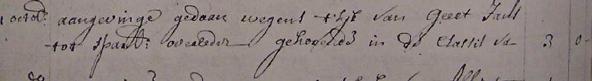 octob: aangevinge gedaan wegens t lijk van Geert Jans
tot Spans: overleden gehorende in de Classis van 3 0-